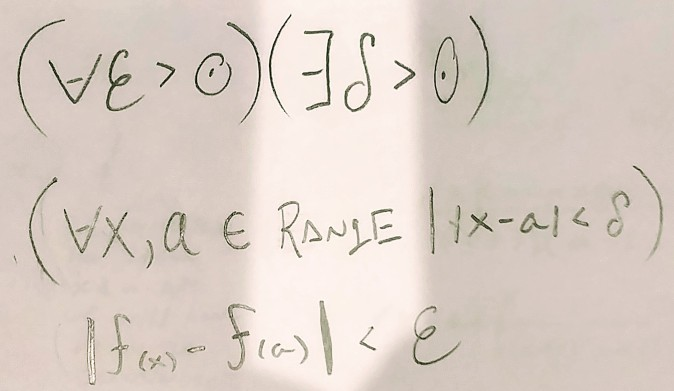 (∀ε > 0)(∃δ > 0)
(∀x, a ∈ RANGE | |x-a| < δ)
|f(x) - f(a)| < ε